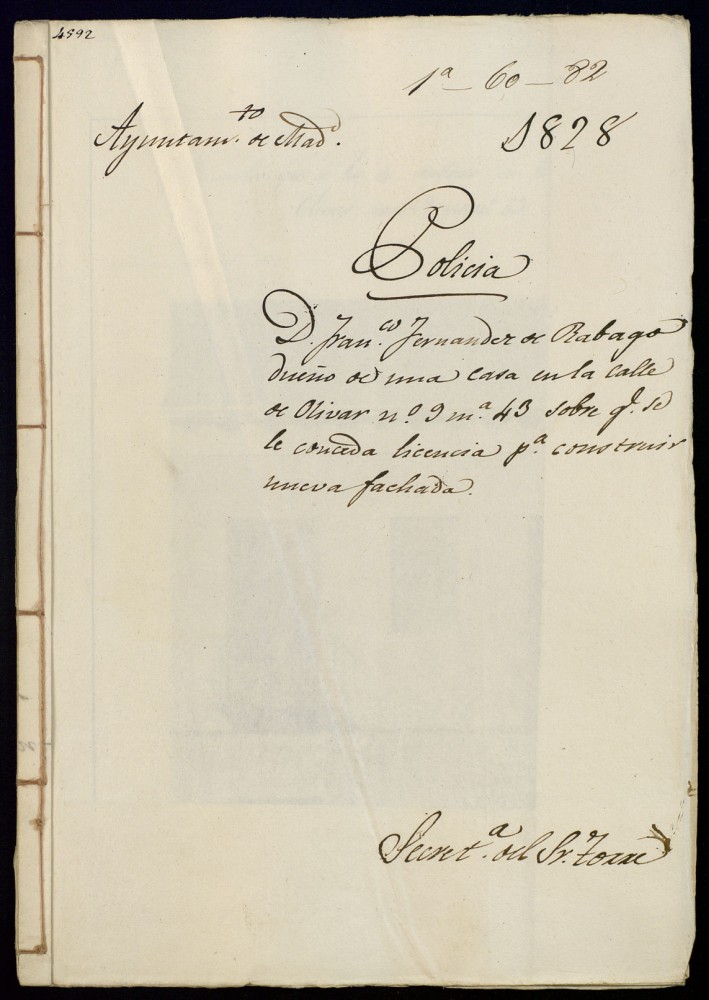 4592
1ª - 60 - 82
Ayuntamto. de Madd.
1828
Policia
D. Franco. Fernandez de Rabago
dueño de una casa en la calle
de Olivar nº 9 mª 43 sobre q.e se
le conceda licencia pª construir
nueva fachada.
Secretª. del Sr. Torre